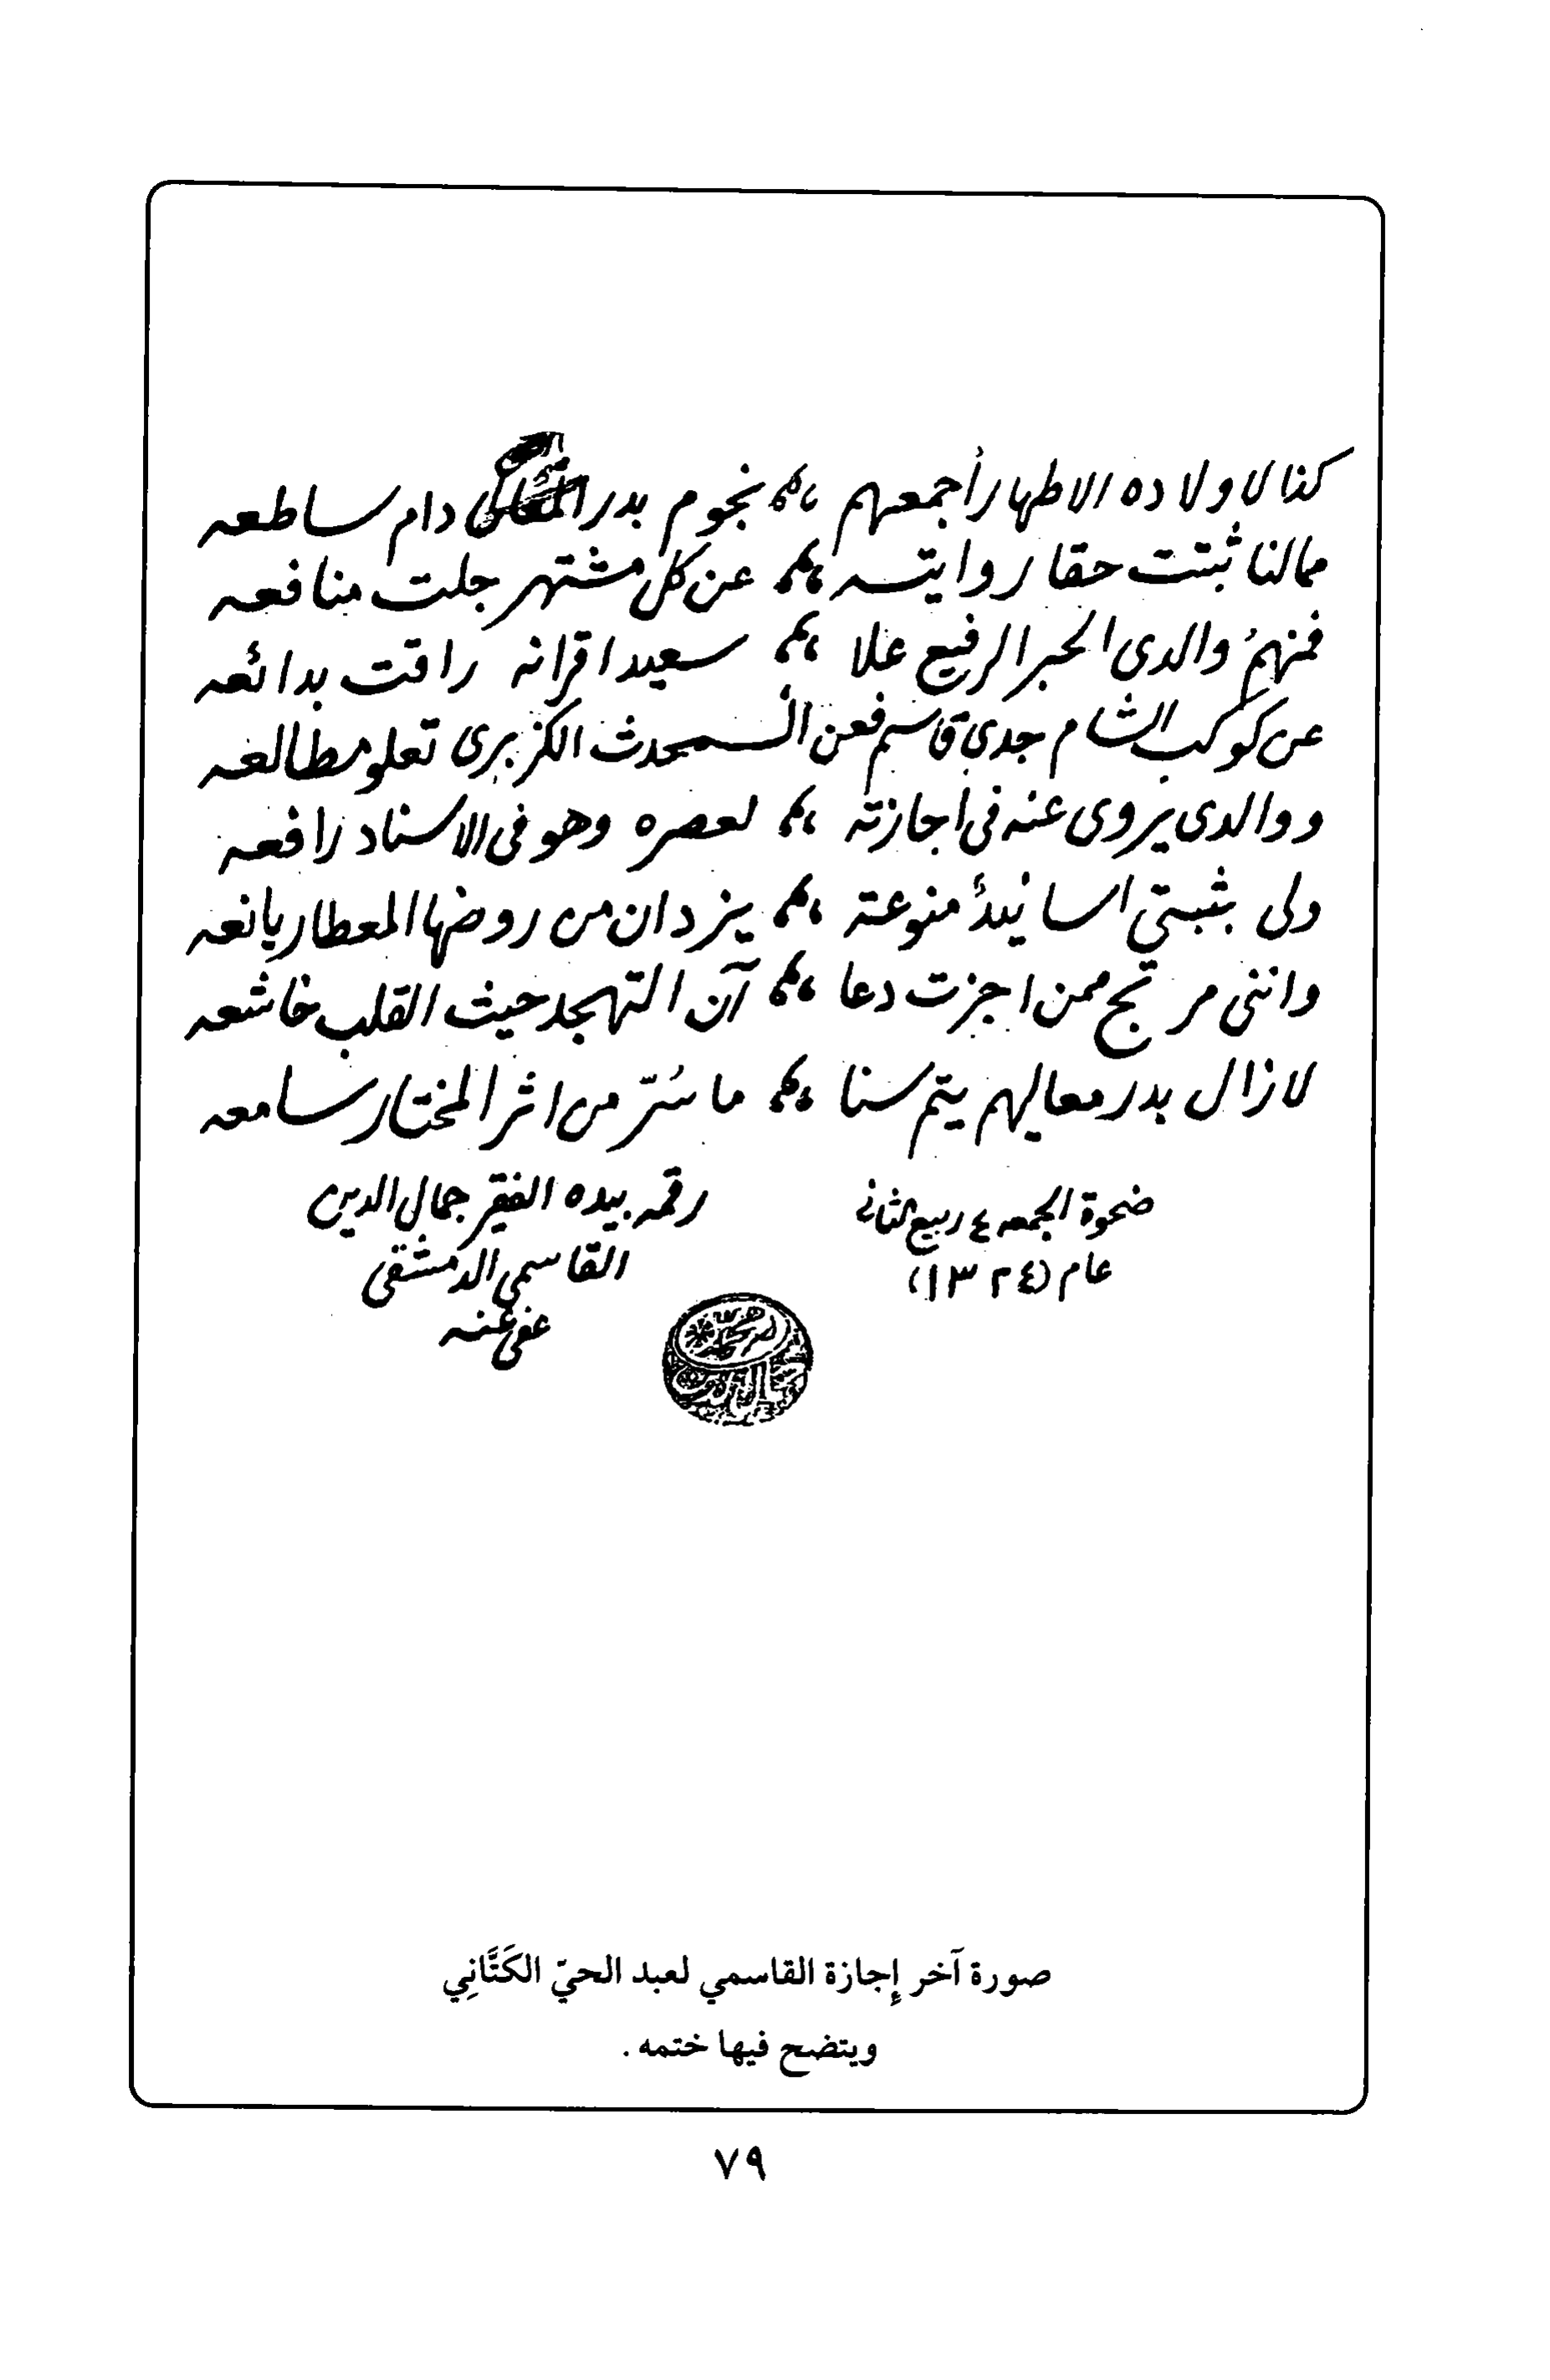 كذا لاولاده الاطهار أجمعهم ،، نجوم بدر دام ساطعه
مما لنا ثبتت حقا روايته ،، عن كل مشتهر جلت منافعه
فمنهمُ والدى الحبر الرفيع علا ،، سعيد اقرانه راقت بدائعه
عن كوكب الشام جدى قاسم فعن الـمحدث الكزبرى تعلو مطالعه
ووالدى يروى عنه فى أجازته ،، لعصره وهو فى الاسناد رافعه
ولى بثبتي اسانيدٌ منوعة ،، يزدان من روضها المعطار يانعه
واننى مرتج ممن اجزت دعا ،، آن التهجد حيث القلب خاشعه
لازال بدر معاليهم يتم سنا ،، ما سُرّ من اثر المختار سامعه
ضحوة الجمعه ٤ ربيع الثاني
عام (١٣٢٤)
رقمه بيده الفقير جمال الدين
القاسمي الدمشقي
عفي عنه
صورة آخر إجازة القاسمي لعبد الحيّ الكَتَّانِي
ويتضح فيها ختمه .
٧٩